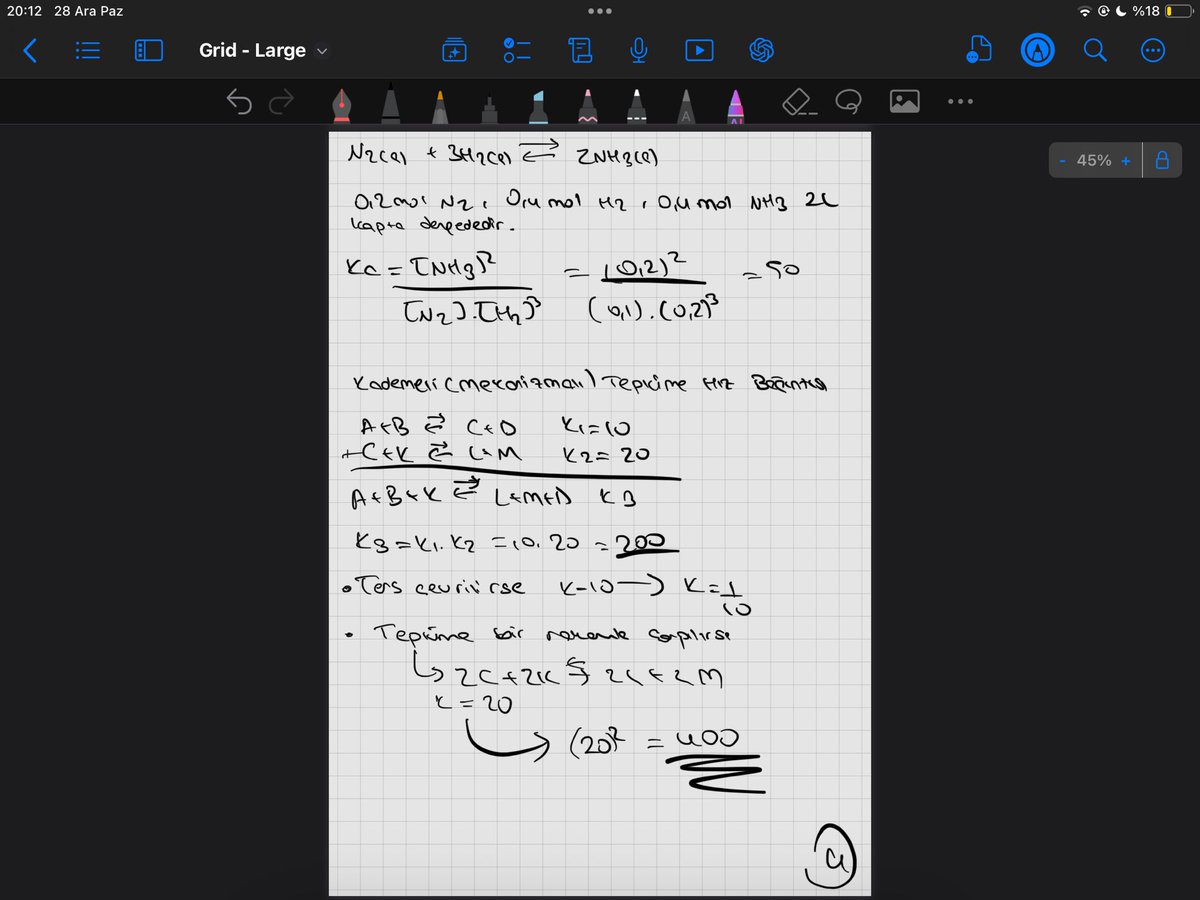 20:12 28 Ara Paz
%18
Grid - Large
45%
N2(g) + 3H2(g) ⇌ 2NH3(g)
0,2 mol N2, 0,4 mol H2, 0,4 mol NH3 2L
kapta dengededir.
Kc = [NH3]² / [N2].[H2]³ = (0,2)² / (0,1).(0,2)³ = 50
Kademeli (mekanizmalı) Tepkime Hız Bağıntısı
A+B ⇌ C+D K1=10
+C+K ⇌ L+M K2= 20
A+B+K ⇌ L+M+D K3
K3 = K1. K2 = 10. 20 = 200
• Ters çevrilirse K-10 → K=1/10
• Tepkime bir rakamla çarpılırse
↳ 2C+2K ⇌ 2L+2M
K = 20
→ (20)² = 400
4